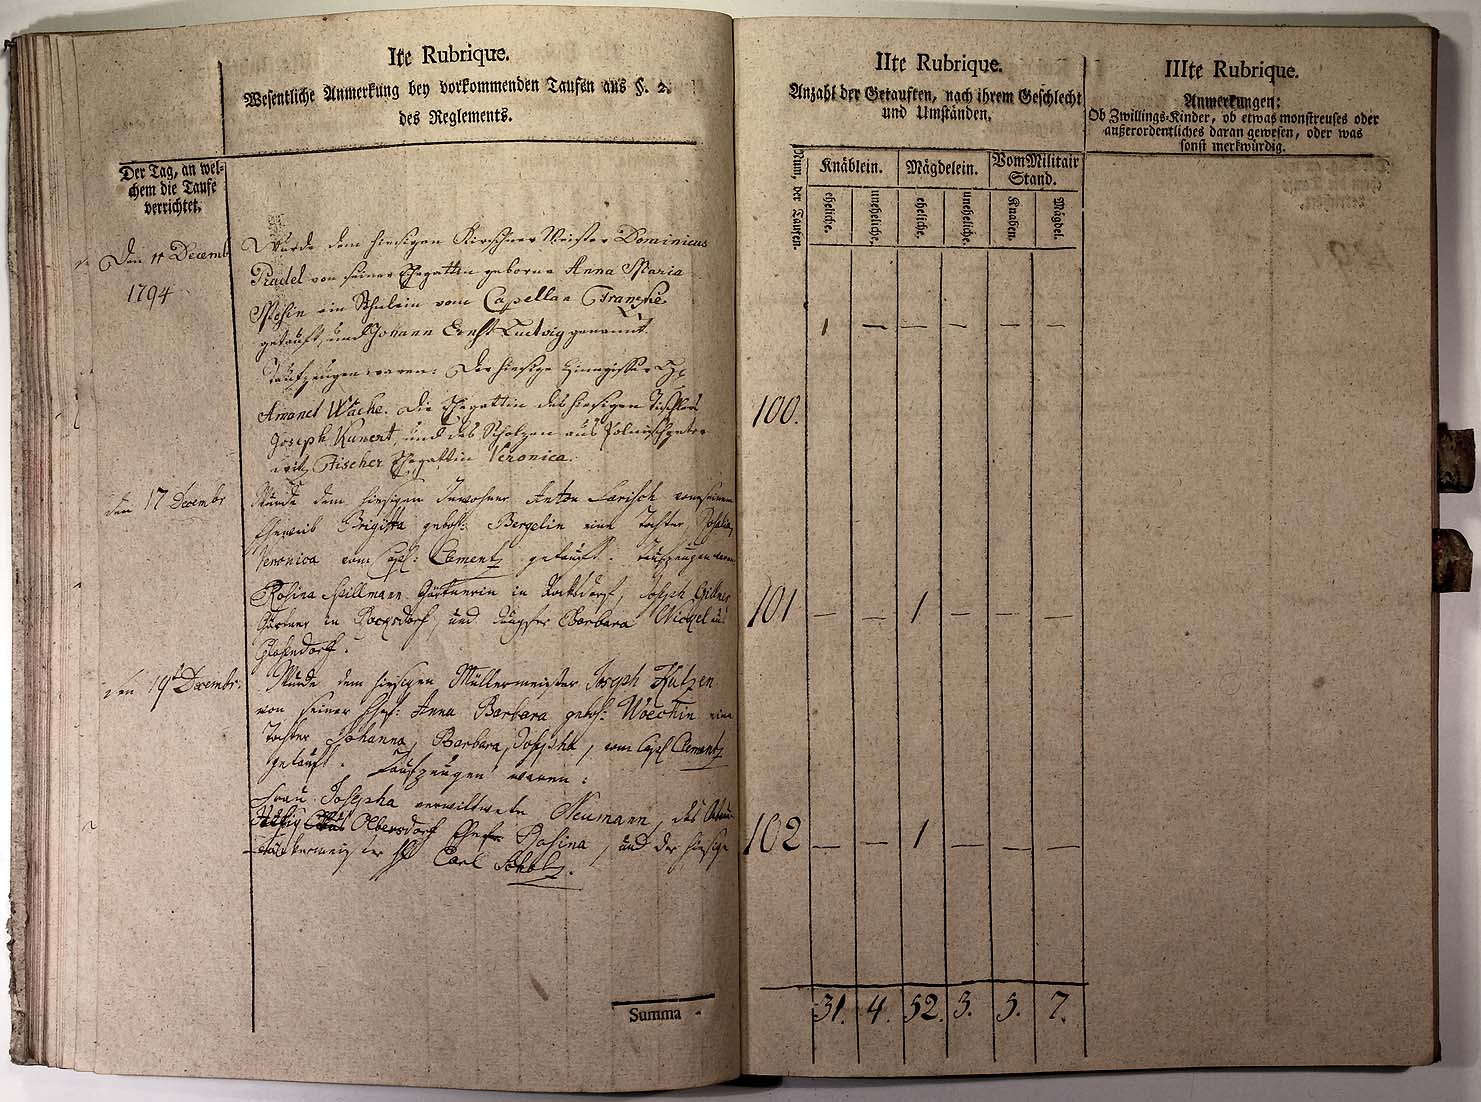 Ite Rubrique.
Wesentliche Anmerkung bey vorkommenden Taufen aus §. 2.
des Reglements.
Der Tag, an wel-
chem die Taufe
verrichtet.
Den 11 Decemb
1794
Wurde dem hiesigen Kirschner Meister Dominicus
Pradel von seiner Ehegattin geborne Anna Maria
ein Söhnlein vom Capellan Francke
getauft, und Johann Ernst Ludwig genannt.
Taufzeugen waren: Der hiesige Zinngisser
Amanel Wache. Die Ehegattin des hiesigen Tischlers
Joseph Kunert, und des Scholzen aus Polnischwette
Fischer Ehegattin Veronica.
den 17 Decembr
Wurde dem hiesigen Inwohner Anton Larisch von seinem
Eheweib Brigitta gebor: Bergelin eine Tochter
Veronica vom Capl: Clementz getauft. Taufzeugen waren
Rosina Spillmann Gärtnerin in Rocksdorf, Joseph Gittner
Gärtner in Rocksdorf, und Jungfer Barbara Nickel aus
den 19t Decembr.
Wurde dem hiesigen Müllermeister Joseph Kutzen
von seiner Ehef: Anna Barbara gebor: Woeckin eine
Tochter Johanna, Barbara, Josepha, vom Capl Clementz
getauft. Taufzeugen waren:
Frau Josepha verwittwete Neumann, des
Olbersdorf Ehefr Rosina, und der hiesige
Hr Carl Scholz.
Summa
IIte Rubrique.
Anzahl der Getauften, nach ihrem Geschlecht
und Umständen.
Num. der Taufen.
Knäblein.
Mägdelein.
Vom Militair
Stand.
eheliche.
uneheliche.
eheliche.
uneheliche.
Knaben.
Mägdel.
1 — — — — —
100.
101 — — 1 — — —
102 — — 1 — — —
31. 4. 52. 3. 5. 7.
IIIte Rubrique.
Anmerkungen:
Ob Zwillings-Kinder, ob etwas monstreuses oder
außerordentliches daran gewesen, oder was
sonst merkwürdig.